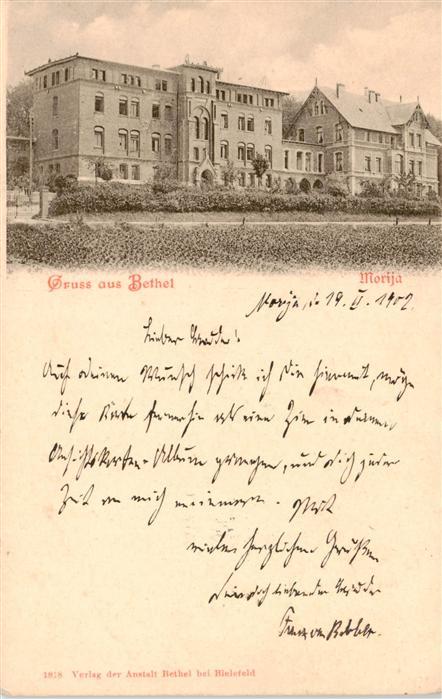 Gruss aus Bethel
Morija
Morija, d. 19. II. 1902.
Lieber
Auf deinen Wunsch schicke ich Dir hiermit, möge
diese Karte fernerhin als eine Zier in deinem
Ansichtskarten-Album prangen, und dich jeder
Zeit an mich erinnern. Mit
vielen herzlichen Grüßen
Dein dich liebender
Franz von
1818 Verlag der Anstalt Bethel bei Bielefeld